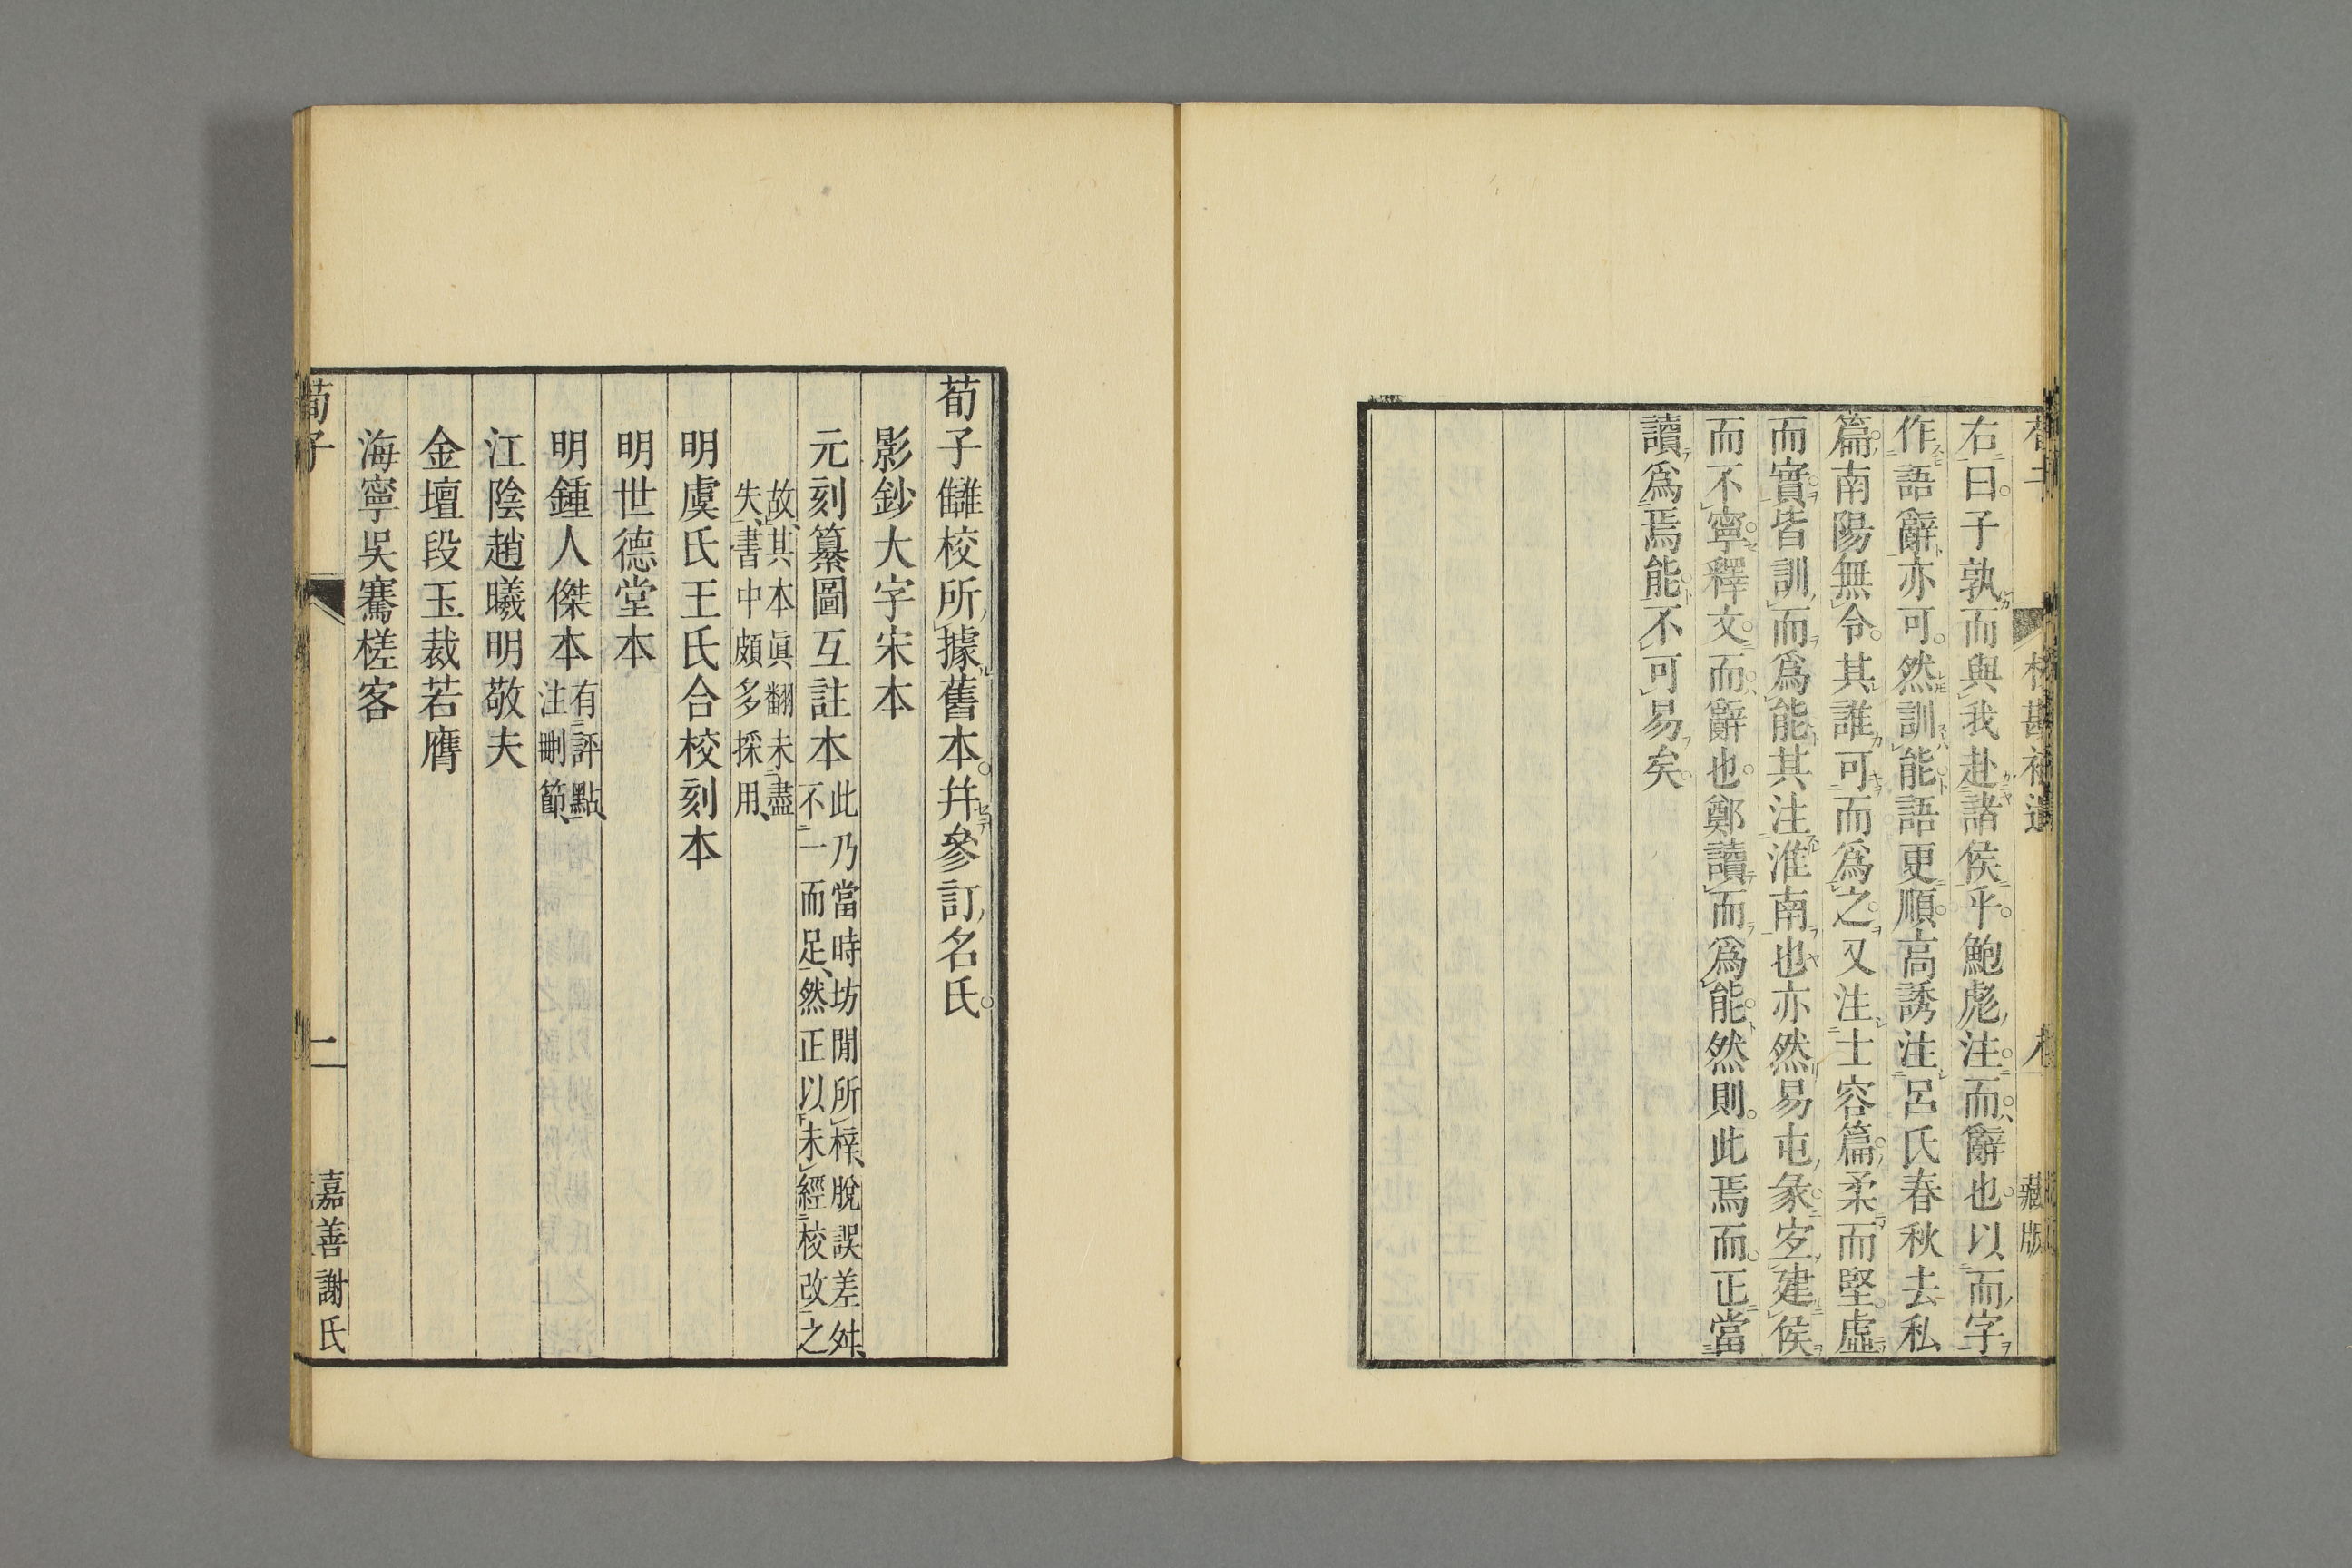 右曰子孰而與我赴諸侯乎鮑彪注而辭也以而字
作語辭亦可然訓能語更順高誘注呂氏春秋去私
篇南陽無令其誰可而爲之又注士容篇柔而堅虛
而實皆訓而爲能其注淮南也亦然易屯彖宐建侯
而不寧釋文而辭也鄭讀而爲能然則此焉而正當
讀爲焉能不可易矣
荀子讎校所據舊本幷參訂名氏
影鈔大字宋本
元刻纂圖互註本此乃當時坊閒所梓脫誤差舛
不一而足然正以未經校改之
故其本眞翻未盡
失書中頗多採用
明虞氏王氏合校刻本
明世德堂本
明鍾人傑本有評點
注刪節
江陰趙曦明敬夫
金壇段玉裁若膺
海寧吳騫槎客
荀子
二
嘉善謝氏